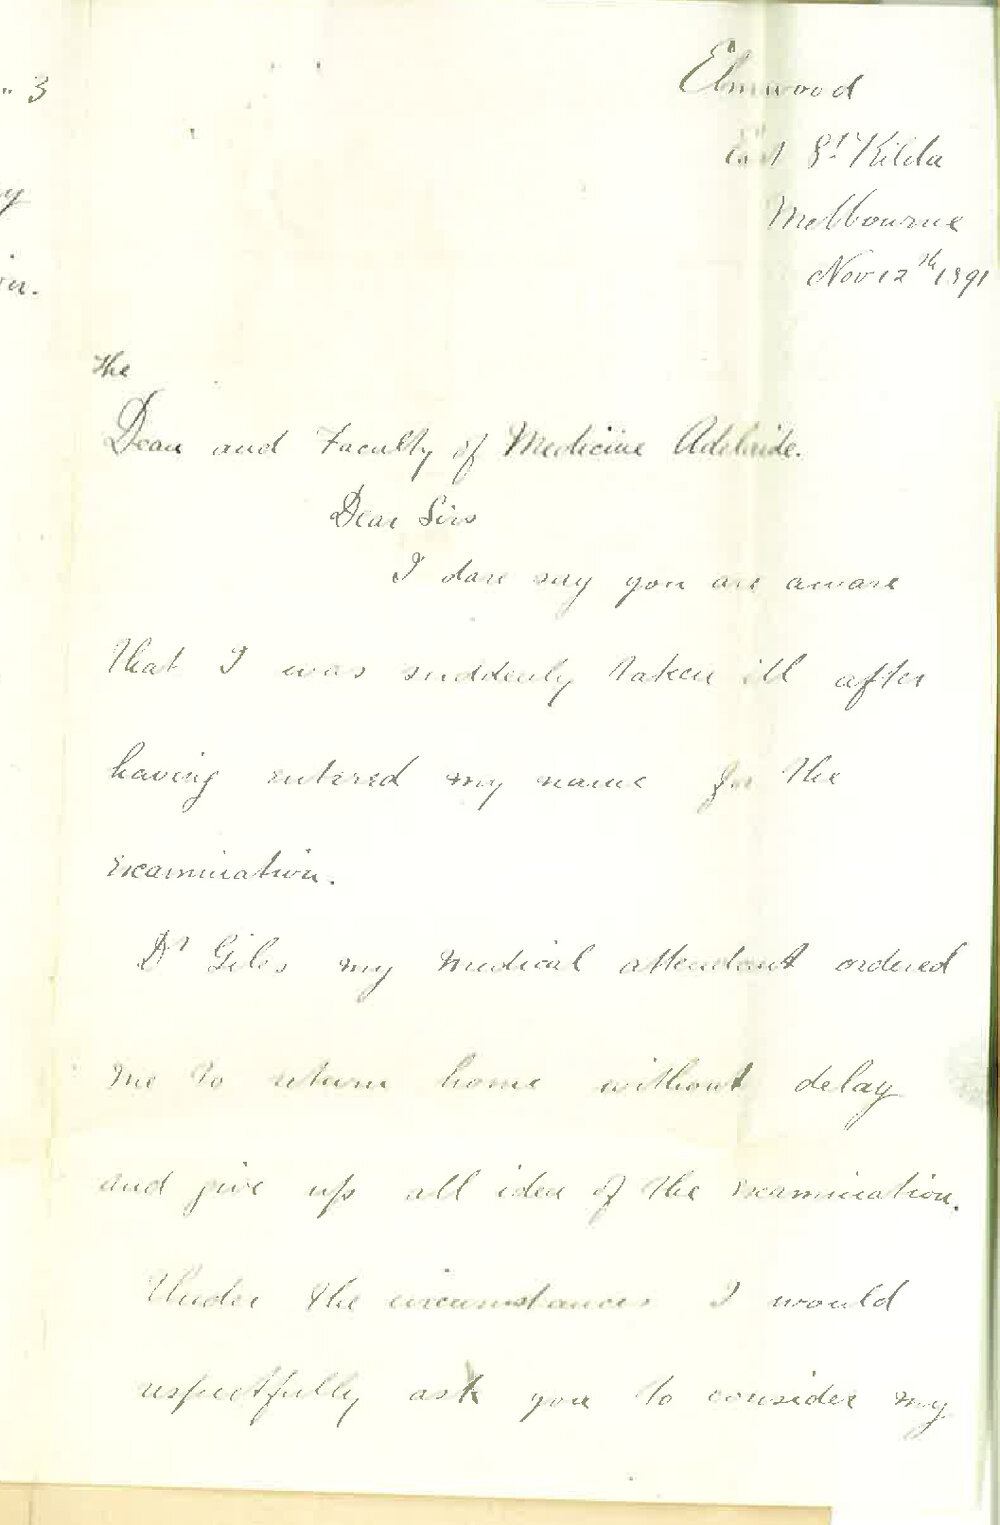 Elmwood
East St Kilda
Melbourne
Nov 12th 1891
The
Dean and Faculty of Medicine Adelaide.
Dear Sirs
I dare say you are aware
that I was suddenly taken ill after
having entered my name for the
examination.
Dr Giles my medical attendant ordered
me to return home without delay
and give up all idea of the examination.
Under the circumstances I would
respectfully ask you to consider my